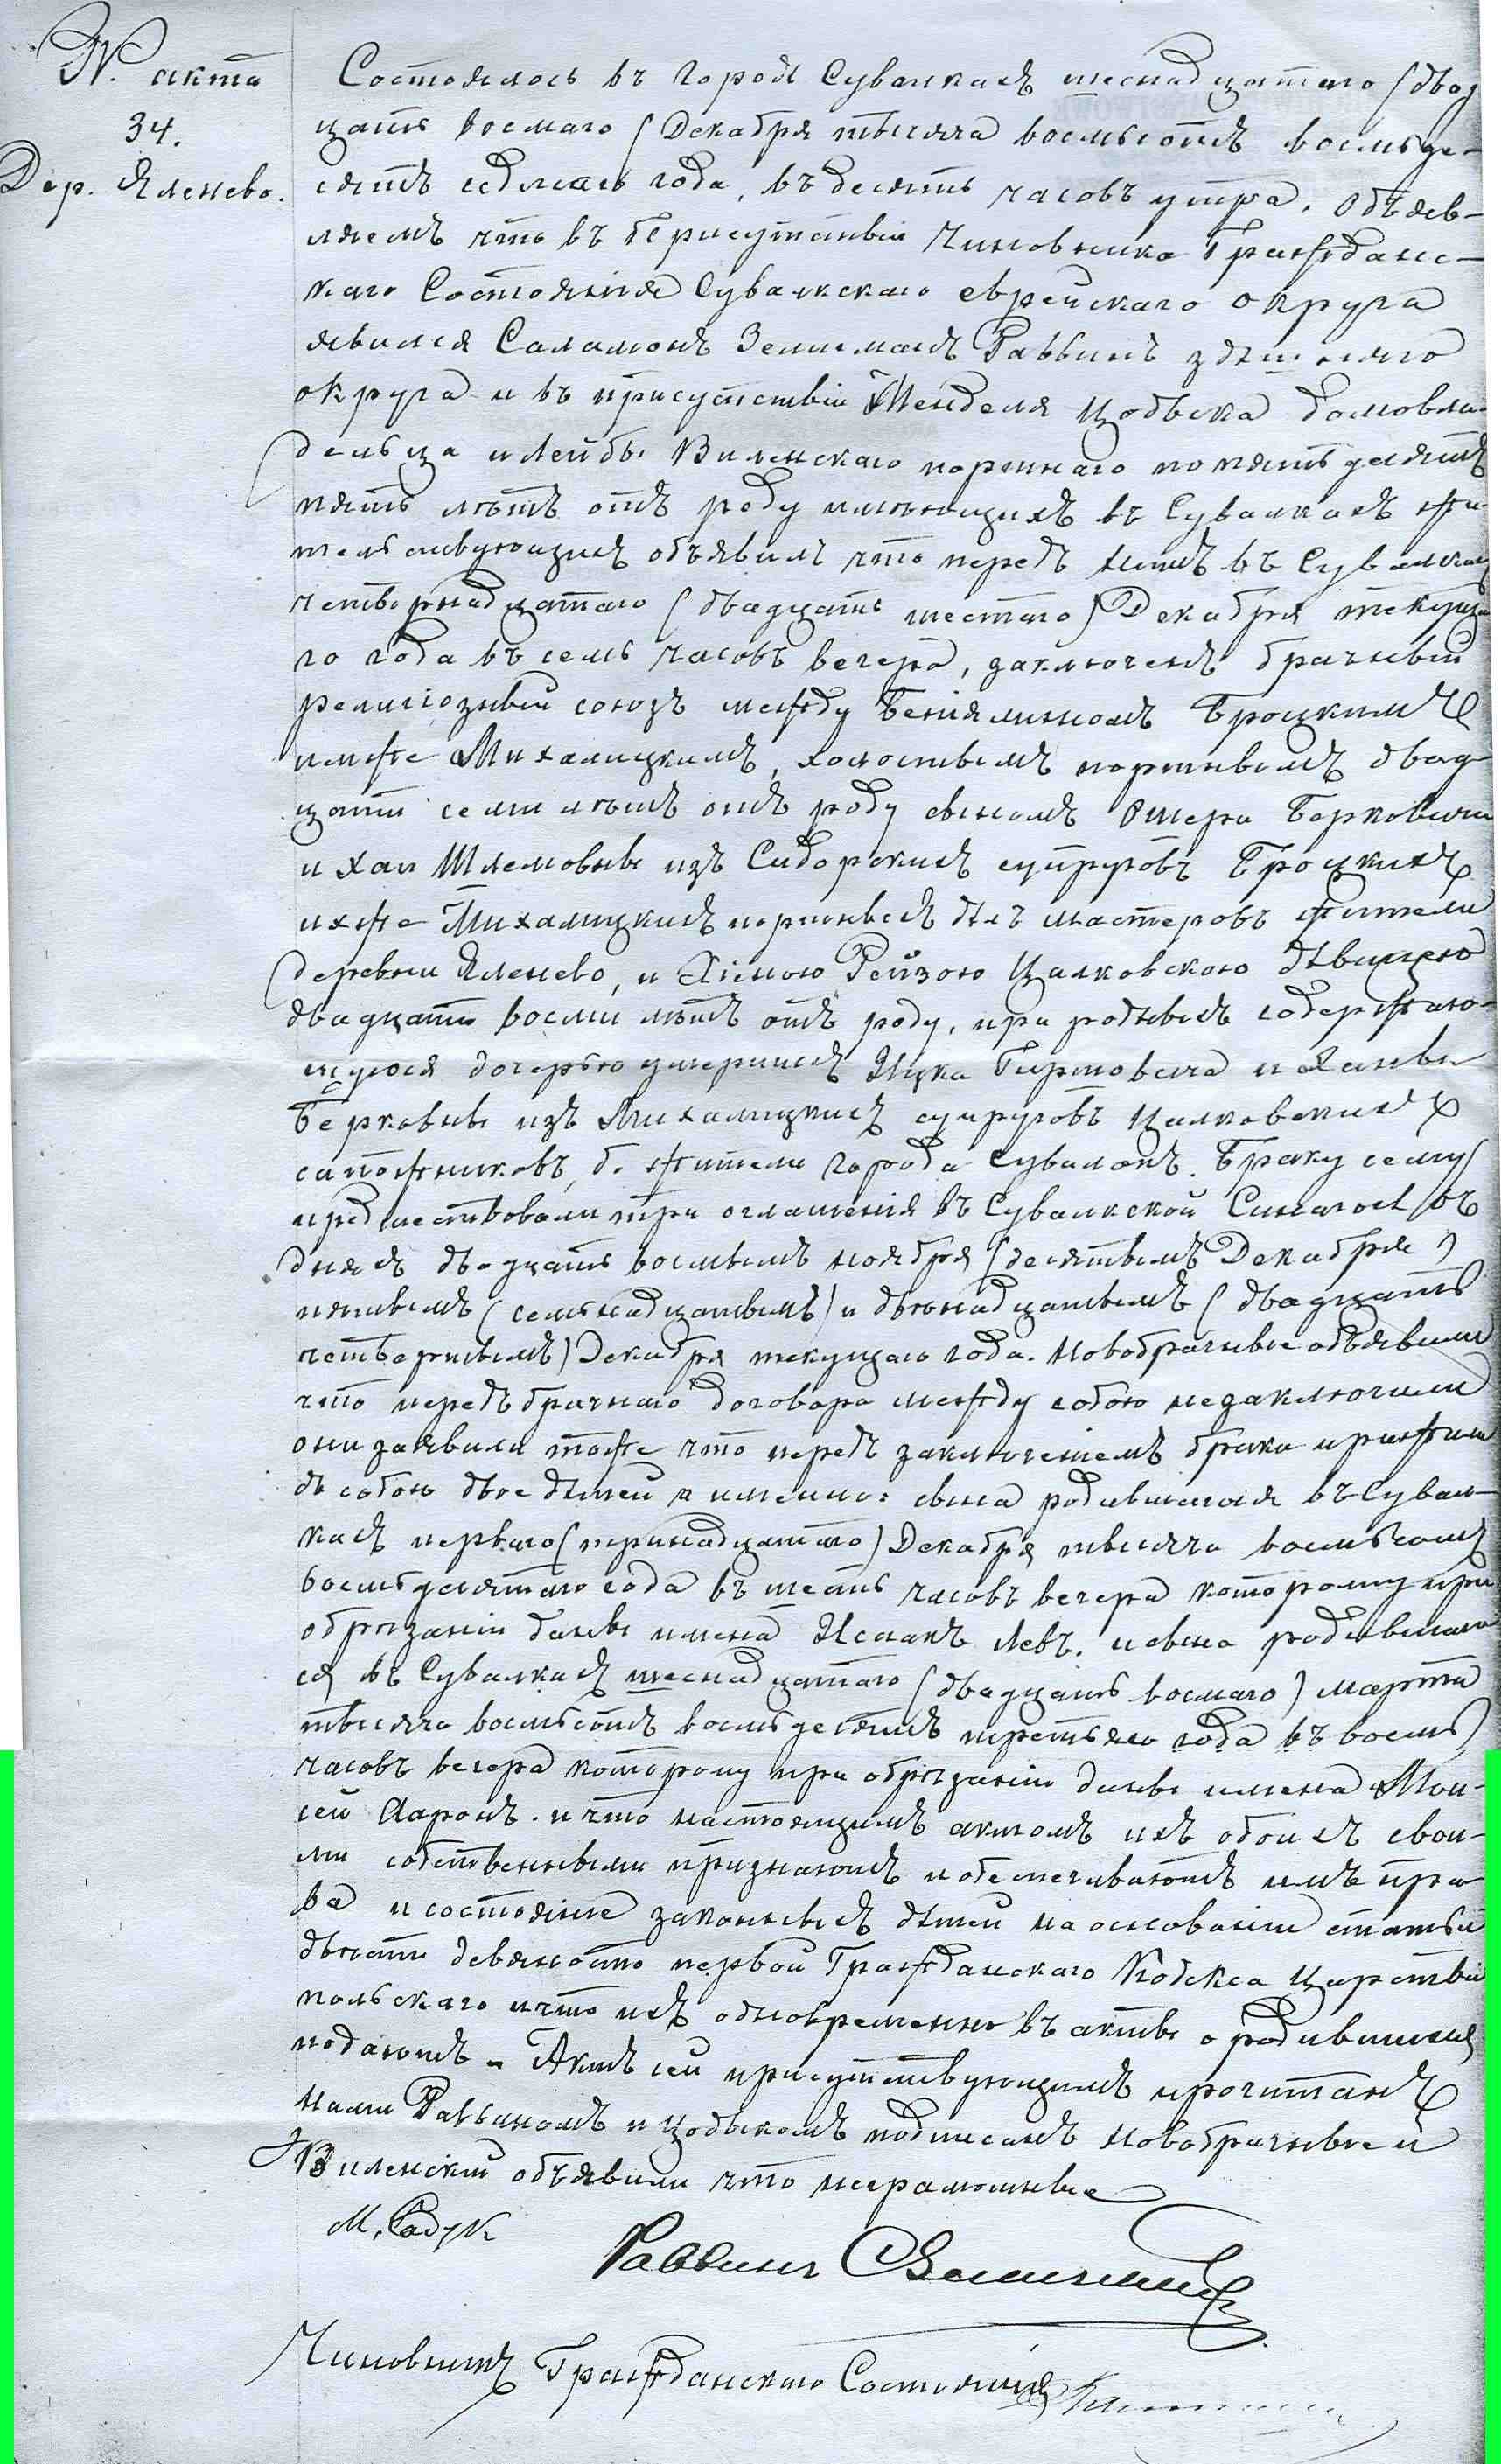 № акта
34.
Дер. Яленево.
Состоялось въ городѣ Сувалкахъ шеснадцатаго (двад
цать восмаго) Декабря тысяча восмьсотъ восмьде-
сятъ седмаго года, въ десять часовъ утра. Объяв-
ляемъ что въ присутствіи Чиновника Гражданс-
каго Состоянія Сувалкскаго еврейскаго округа
явился Саламонъ Зелигманъ Раввинъ здѣшняго
округа и въ присутствіи Менделя Цодыка домовла-
дельца и Лейбы Виленскаго портнаго по пятьдесятъ
пять лѣтъ отъ роду имѣющихъ въ Сувалкахъ жи-
тельствующихъ объявилъ что передъ нимъ въ Сувалкахъ
четвернадцатаго (двадцать шестаго) Декабря текуща
го года въ семь часовъ вечера, заключенъ брачный
религіозный союзъ между Беніяминомъ Броцкимъ
имже Михалицкимъ, холостымъ портнымъ двад
цати семи лѣтъ отъ роду сыномъ Ошера Берковича
и Хаи Шлемовны изъ Сидорскихъ супруговъ Броцкихъ
ихже Михалицкихъ портныхъ дѣлъ мастеровъ жители
деревни Яленево, и Хіеною Рейзою Цалковскою дѣвицею
двадцати восми лѣтъ отъ роду, при родныхъ содержаю-
щуюся дочерью умершихъ Ицка Гиршовича и Ханы
Берковны изъ Михалицкихъ супруговъ Цалковскихъ
сапожниковъ, б. жители города Сувалокъ. Браку сему
предшествовали три оглашенія въ Сувалкской Синагогѣ въ
дняхъ двадцать восмымъ ноября (десятымъ Декабря)
пятымъ (семьнадцатымъ) и двенадцатымъ (двадцать
четвертымъ) Декабря текущаго года. Новобрачные объявили
что передъ брачнаго договора между собою незаключили
они заявили тоже что передъ заключеніемъ брака прижили
съ собою двое дѣтей а именно: сына родившагося въ Сувал-
кахъ перваго (тринадцатаго) Декабря тысяча восмьсотъ
восмьдесятаго года въ шесть часовъ вечера которому при
обрѣзаніи даны имена Исаакъ Левъ. и сына родившаго
ся въ Сувалкахъ шеснадцатаго (двадцать восмаго) марта
тысяча восмьсотъ восмьдесятъ третьяго года въ восмь
часовъ вечера которому при обрѣзаніи даны имена Мои-
сей Ааронъ. и что настоящимъ актомъ ихъ обоихъ свои-
ми собственными признаютъ и обеспечиваютъ имъ пра-
ва и состояніе законныхъ дѣтей на основаніи статьи
двѣсти девяносто первой Гражданскаго Кодекса Царства
польскаго и что ихъ одновременно въ акты о родившихся
подаютъ. Актъ сей присутствующимъ прочитанъ
Нами Раввиномъ и Цодыкомъ подписанъ Новобрачные и
Виленскій объявили что неграмотные
М. Садук
Раввинъ С Зелигманъ
Чиновникъ Гражданскаго Состоянія